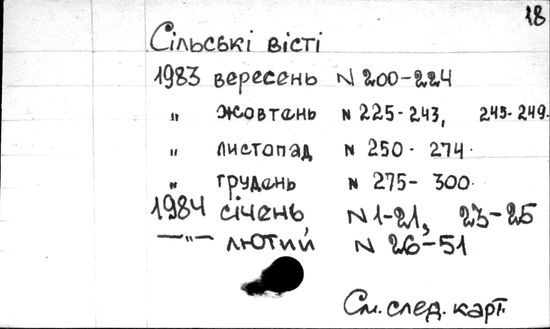 18
Сільські вісті
1983 вересень N 200-224
" жовтень N 225-243, 245-249.
" листопад N 250-274.
" грудень N 275-300.
1984 січень N 1-21, 23-25
—"— лютий N 26-51
См. след. карт.